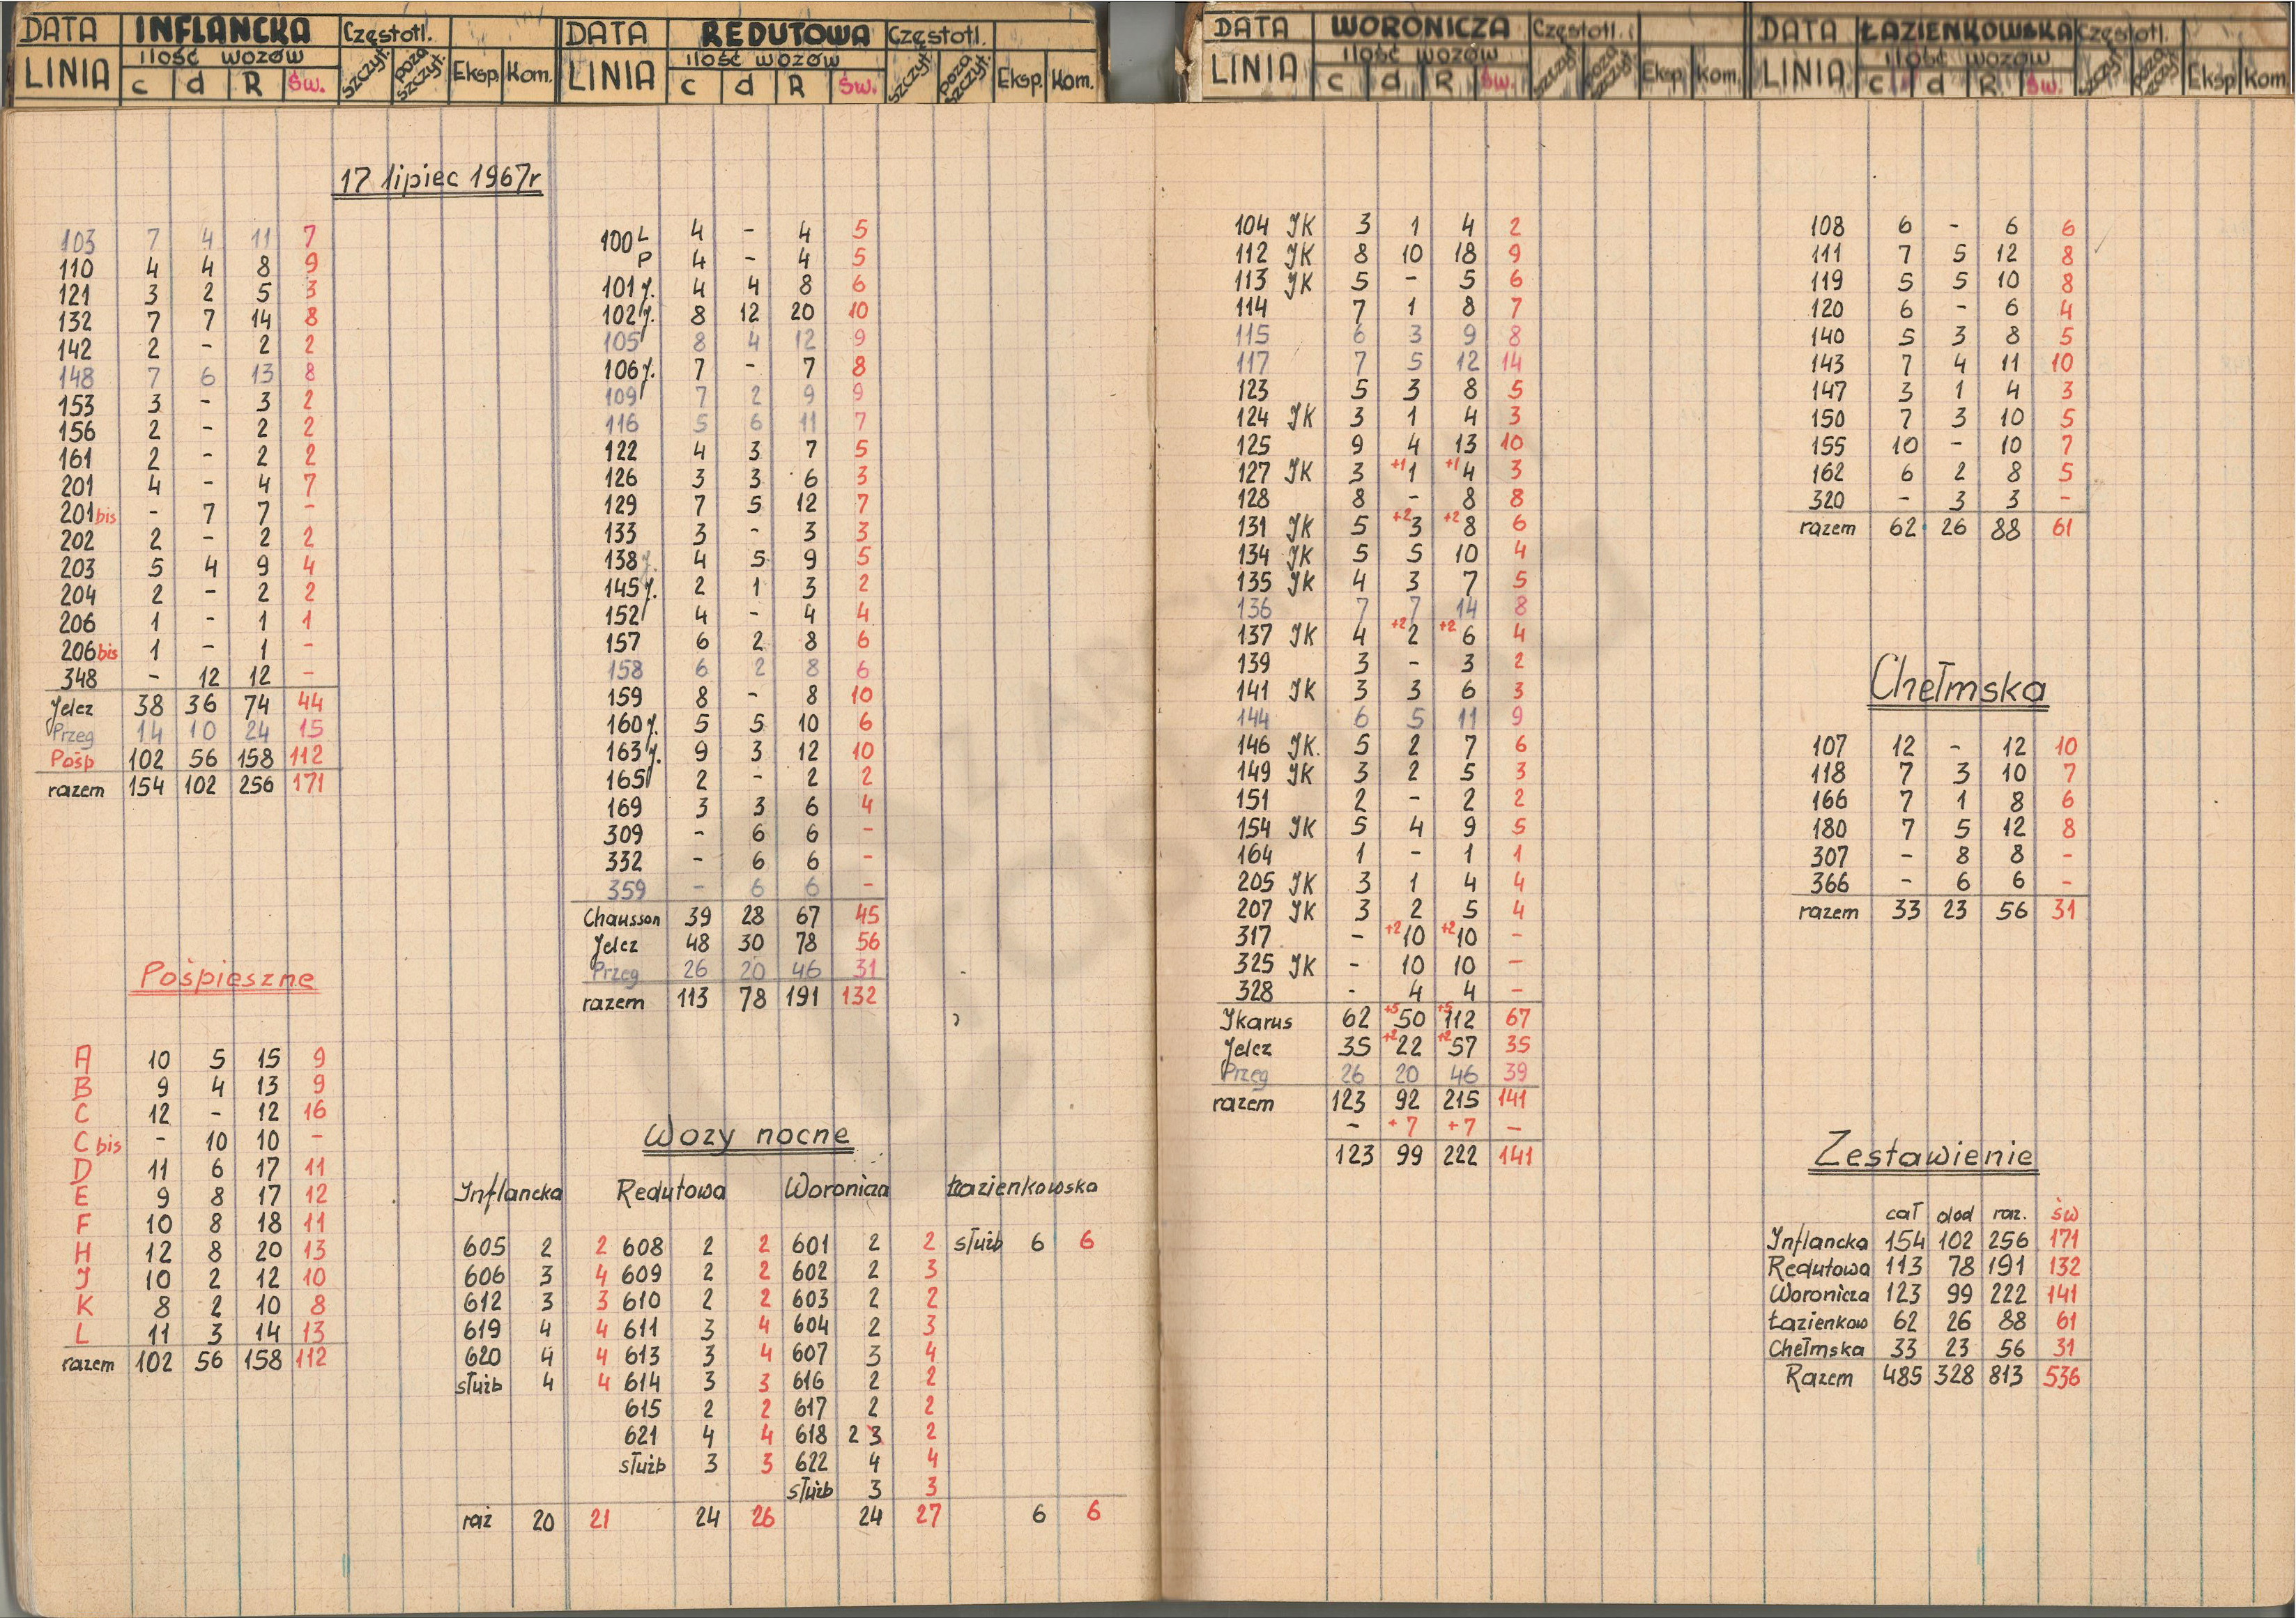 DATA INFLANCKA Częstotl.
ilość wozów
LINIA c d R Św. szczyt. poza szczyt. Eksp. Kom.
17 lipiec 1967r
103 7 4 11 7
110 4 4 8 9
121 3 2 5 3
132 7 7 14 8
142 2 - 2 2
148 7 6 13 8
153 3 - 3 2
156 2 - 2 2
161 2 - 2 2
201 4 - 4 7
201 bis - 7 7 -
202 2 - 2 2
203 5 4 9 4
204 2 - 2 2
206 1 - 1 1
206 bis 1 - 1 -
348 - 12 12 -
Jelcz 38 36 74 44
Przeg 14 10 24 15
Pośp 102 56 158 112
razem 154 102 256 171
Pośpieszne
A 10 5 15 9
B 9 4 13 9
C 12 - 12 16
C bis - 10 10 -
D 11 6 17 11
E 9 8 17 12
F 10 8 18 11
H 12 8 20 13
J 10 2 12 10
K 8 2 10 8
L 11 3 14 13
razem 102 56 158 112
DATA REDUTOWA Częstotl.
ilość wozów
LINIA c d R Św. szczyt. poza szczyt. Eksp. Kom.
100 L 4 - 4 5
P 4 - 4 5
101 j. 4 4 8 6
102 j. 8 12 20 10
105 8 4 12 9
106 j. 7 - 7 8
109 7 2 9 9
116 5 6 11 7
122 4 3 7 5
126 3 3 6 3
129 7 5 12 7
133 3 - 3 3
138 j. 4 5 9 5
145 j. 2 1 3 2
152 4 - 4 4
157 6 2 8 6
158 6 2 8 6
159 8 - 8 10
160 j. 5 5 10 6
163 j. 9 3 12 10
165 2 - 2 2
169 3 3 6 4
309 - 6 6 -
332 - 6 6 -
359 - 6 6 -
Chausson 39 28 67 45
Jelcz 48 30 78 56
Przeg 26 20 46 31
razem 113 78 191 132
Wozy nocne
Inflancka Redutowa Woronicza Łazienkowska
605 2 2 608 2 2 601 2 2 służb 6 6
606 3 4 609 2 2 602 2 3
612 3 3 610 2 2 603 2 2
619 4 4 611 3 4 604 2 3
620 4 4 613 3 4 607 3 4
służb 4 4 614 3 3 616 2 2
615 2 2 617 2 2
621 4 4 618 2 3 2
służb 3 3 622 4 4
służb 3 3
raz 20 21 24 26 24 27 6 6
DATA WORONICZA Częstotl.
ilość wozów
LINIA c d R Św. szczyt. poza szczyt. Eksp. Kom.
104 JK 3 1 4 2
112 JK 8 10 18 9
113 JK 5 - 5 6
114 7 1 8 7
115 6 3 9 8
117 7 5 12 14
123 5 3 8 5
124 JK 3 1 4 3
125 9 4 13 10
127 JK 3 +1 1 +1 4 3
128 8 - 8 8
131 JK 5 +2 3 +2 8 6
134 JK 5 5 10 4
135 JK 4 3 7 5
136 7 7 14 8
137 JK 4 +2 2 +2 6 4
139 3 - 3 2
141 JK 3 3 6 3
144 6 5 11 9
146 JK. 5 2 7 6
149 JK 3 2 5 3
151 2 - 2 2
154 JK 5 4 9 5
164 1 - 1 1
205 JK 3 1 4 4
207 JK 3 2 5 4
317 - +2 10 +2 10 -
325 JK - 10 10 -
328 - 4 4 -
Jkarus 62 +5 50 +5 112 67
Jelcz 35 +2 22 +2 57 35
Przeg 26 20 46 39
razem 123 92 215 141
- +7 +7 -
123 99 222 141
DATA ŁAZIENKOWSKA Częstotl.
ilość wozów
LINIA c d R Św. szczyt. poza szczyt. Eksp Kom.
108 6 - 6 6
111 7 5 12 8
119 5 5 10 8
120 6 - 6 4
140 5 3 8 5
143 7 4 11 10
147 3 1 4 3
150 7 3 10 5
155 10 - 10 7
162 6 2 8 5
320 - 3 3 -
razem 62 26 88 61
Chełmska
107 12 - 12 10
118 7 3 10 7
166 7 1 8 6
180 7 5 12 8
307 - 8 8 -
366 - 6 6 -
razem 33 23 56 31
Zestawienie
cał dod raz. św
Inflancka 154 102 256 171
Redutowa 113 78 191 132
Woronicza 123 99 222 141
Łazienkow 62 26 88 61
Chełmska 33 23 56 31
Razem 485 328 813 536